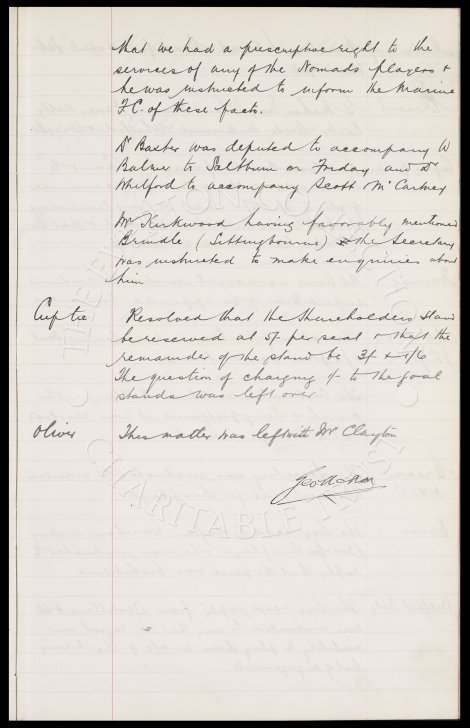 that we had a prescriptive right to the
services of any of the Nomads players &
he was instructed to inform the Marine
F.C. of these facts.
Dr Baxter was deputed to accompany W
Balmer to Saltburn on Friday and Dr
Whitford to accompany Scott McCartney
Mr Kirkwood having favorably mentioned
Brindle (Sittingbourne) the Secretary
was instructed to make enquiries about
him
Cup tie Resolved that the shareholders stand
be reserved at 5/- per seat & that the
remainder of the stand be 3/- & 1/6
The question of charging 1/- to the goal
stands was left over
Oliver This matter was left with Mr Clayton
THE EVERTON COLLECTION
CHARITABLE TRUST